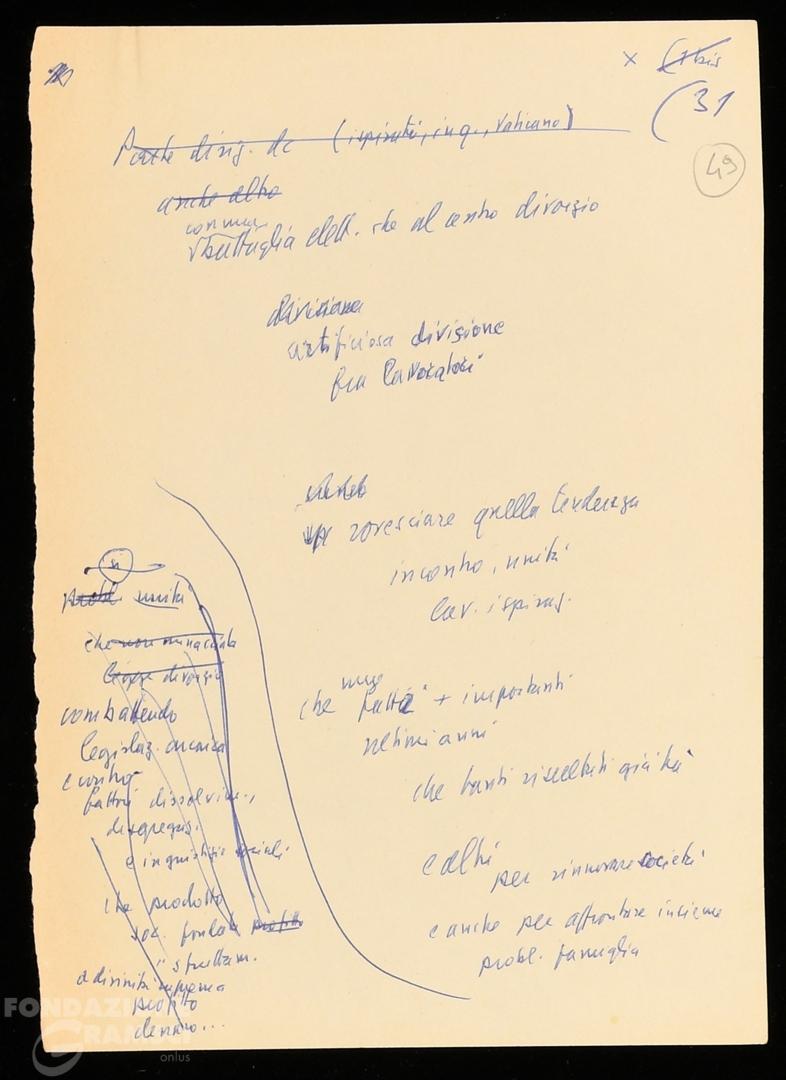 x (3 bis
(31
49
Parte dirig. dc (ispirati, in q., Vaticano)
anche altro
con una
battaglia elett. che al centro divorzio
divisione
artificiosa divisione
fra lavoratori
rovesciare quella tendenza
incontro, unità
lav. ispiraz.
che una fatti + importanti
ultimi anni
che tanti risultati già ha
e altri
per rinnovare società
e anche per affrontare insieme
probl. famiglia
probl. unità
che non minacciata
legge divorzio
combattendo
legislaz. arcaica
e contro
fattori dissolvim.,
disgregaz.
e ingiustizie sociali
che prodotto
soc. fondata profitto
" sfruttam.
a divinità suprema
profitto
denaro...
FONDAZIONE
GRAMSCI
onlus